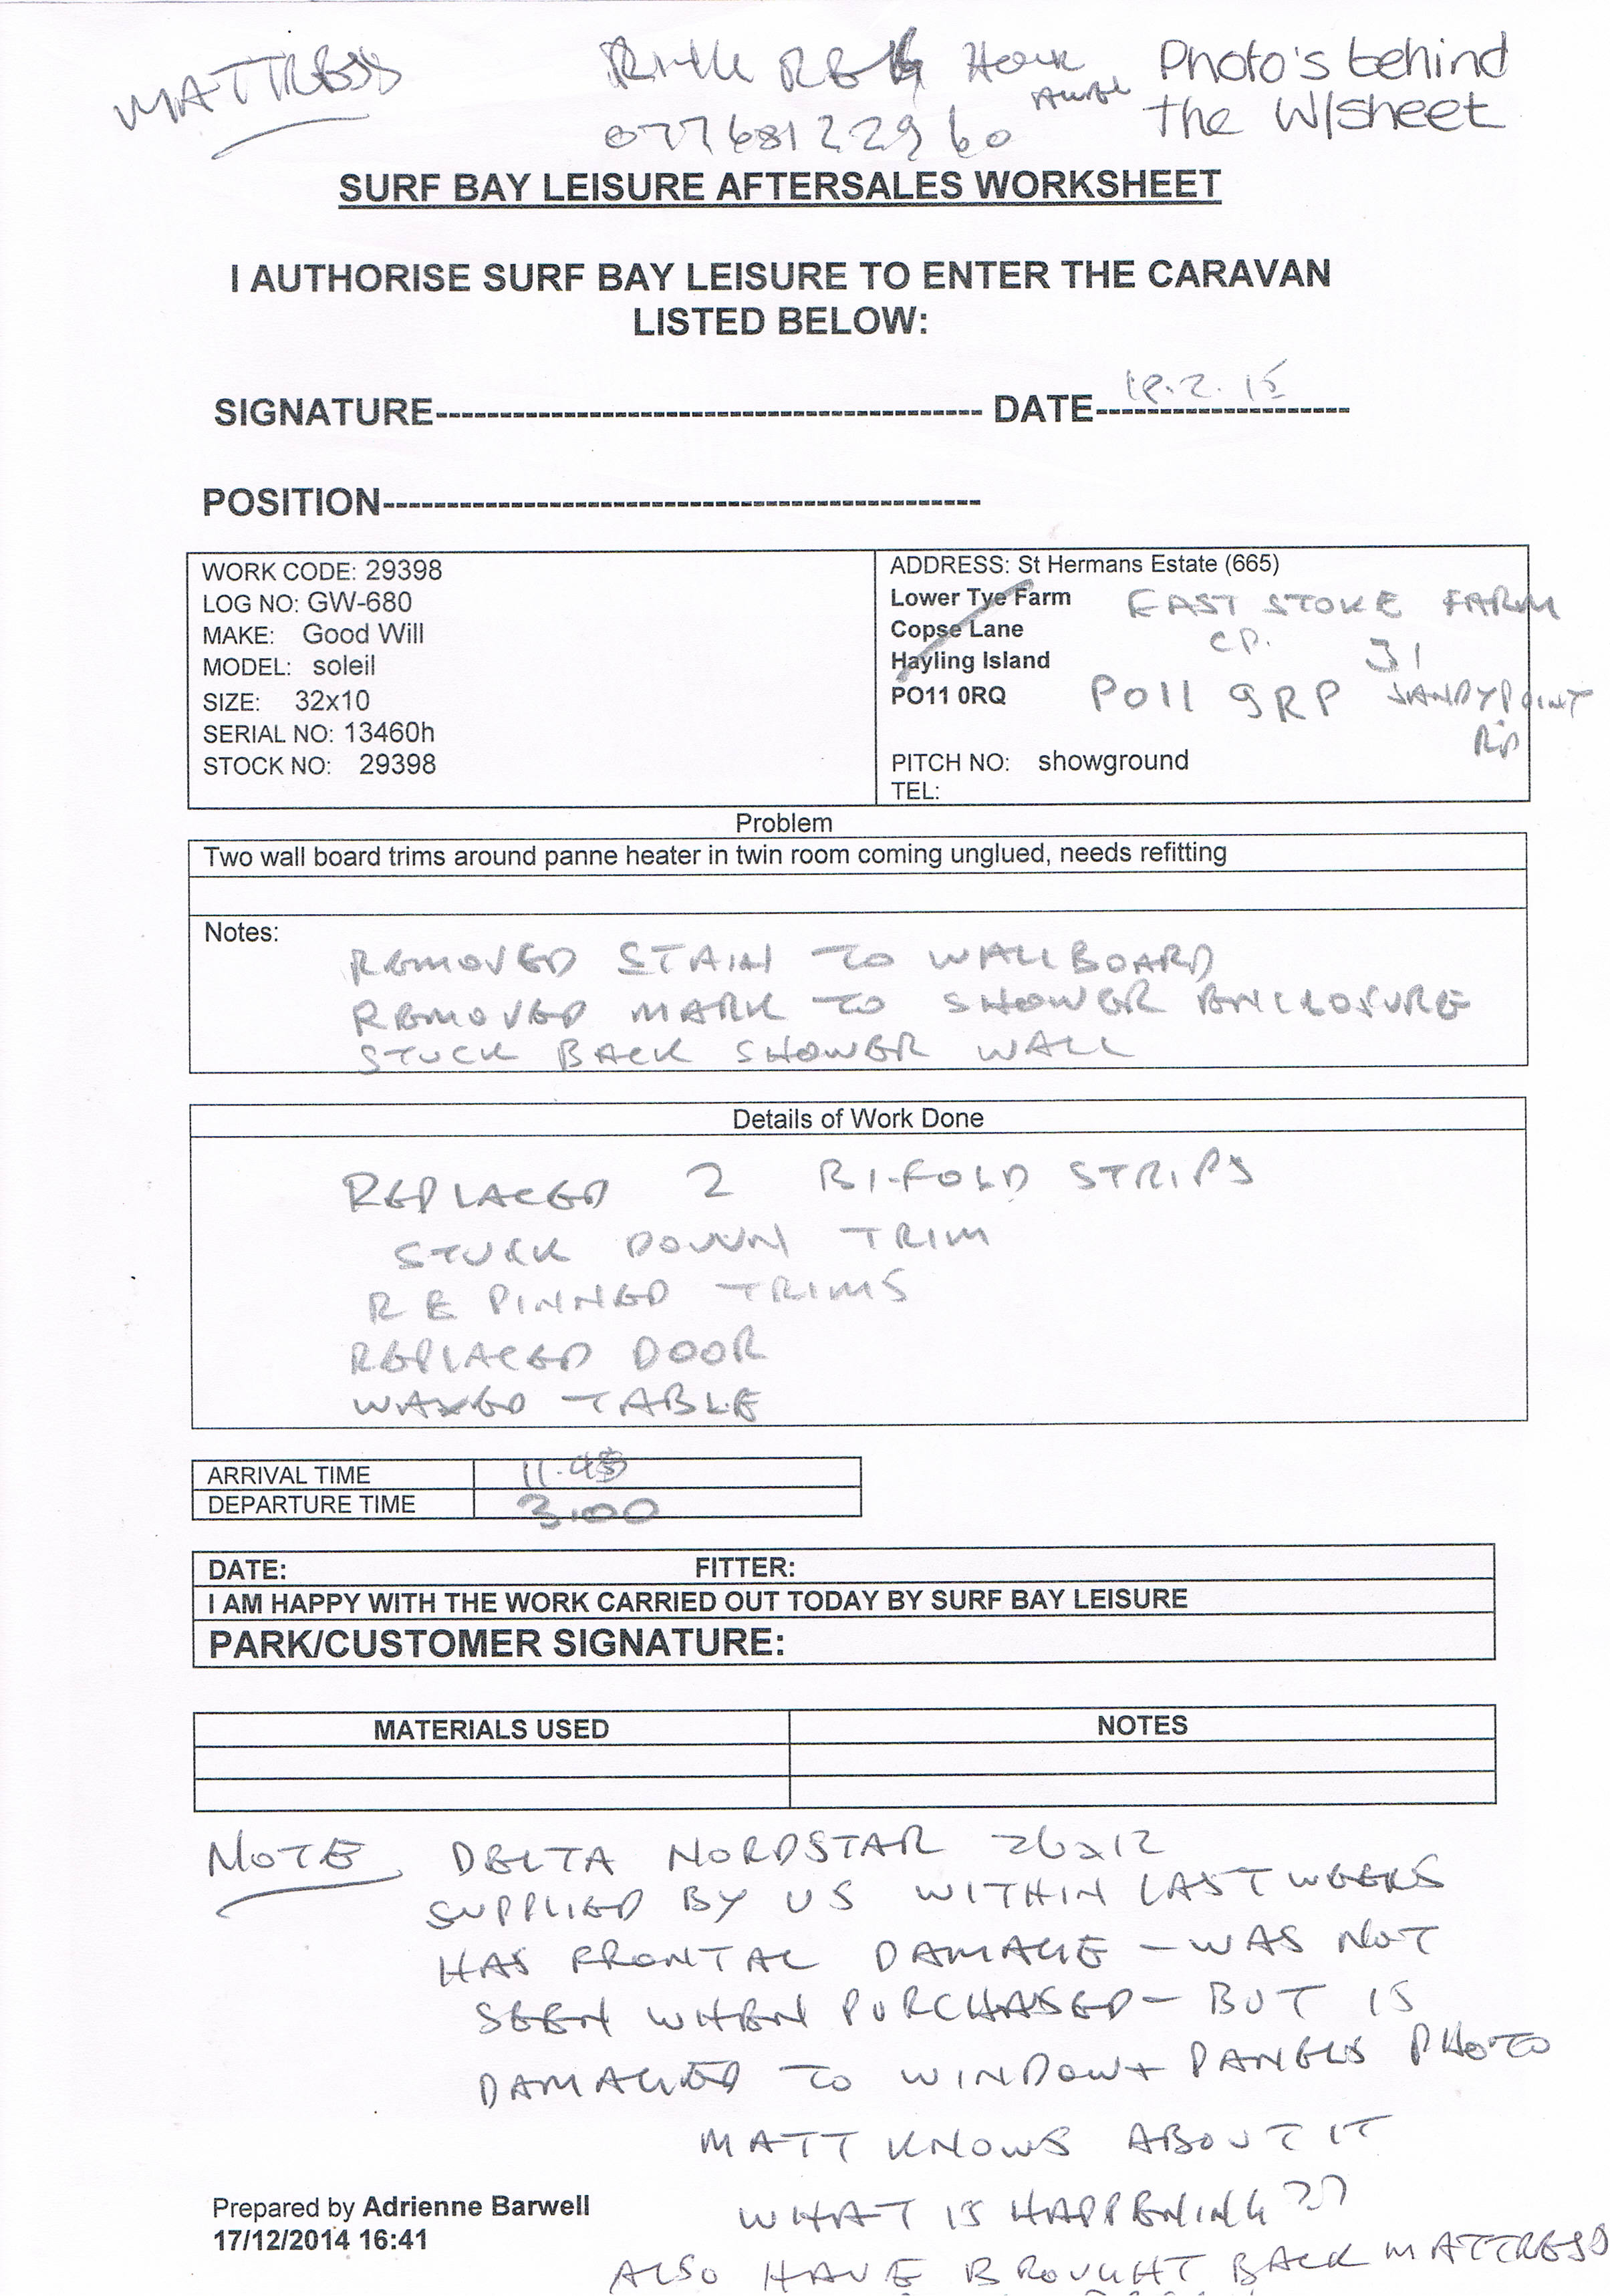 MATTRESS
Photo's behind
the W/sheet
07768122960
SURF BAY LEISURE AFTERSALES WORKSHEET
I AUTHORISE SURF BAY LEISURE TO ENTER THE CARAVAN
LISTED BELOW:
SIGNATURE------------------------------------------- DATE-------------------- 18.2.15
POSITION-----------------------------------------------
WORK CODE: 29398
LOG NO: GW-680
MAKE: Good Will
MODEL: soleil
SIZE: 32x10
SERIAL NO: 13460h
STOCK NO: 29398
ADDRESS: St Hermans Estate (665)
Lower Tye Farm EAST STOKE FARM
Copse Lane C.P. 31
Hayling Island
PO11 0RQ PO11 9RP SANDYPOINT
RD
PITCH NO: showground
TEL:
Problem
Two wall board trims around panne heater in twin room coming unglued, needs refitting
Notes:
REMOVED STAIN TO WALLBOARD
REMOVED MARK TO SHOWER ENCLOSURE
STUCK BACK SHOWER WALL
Details of Work Done
REPLACED 2 BI-FOLD STRIPS
STUCK DOWN TRIM
RE PINNED TRIMS
REPLACED DOOR
WAXED TABLE
ARRIVAL TIME 11.45
DEPARTURE TIME 3.00
DATE: FITTER:
I AM HAPPY WITH THE WORK CARRIED OUT TODAY BY SURF BAY LEISURE
PARK/CUSTOMER SIGNATURE:
MATERIALS USED NOTES
NOTE DELTA NORDSTAR 26x12
SUPPLIED BY US WITHIN LAST WEEKS
HAS FRONTAL DAMAGE - WAS NOT
SEEN WHEN PURCHASED - BUT IS
DAMAGED TO WINDOW + PANELS PHOTO
MATT KNOWS ABOUT IT
WHAT IS HAPPENING ??
ALSO HAVE BROUGHT BACK MATTRESS
Prepared by Adrienne Barwell
17/12/2014 16:41